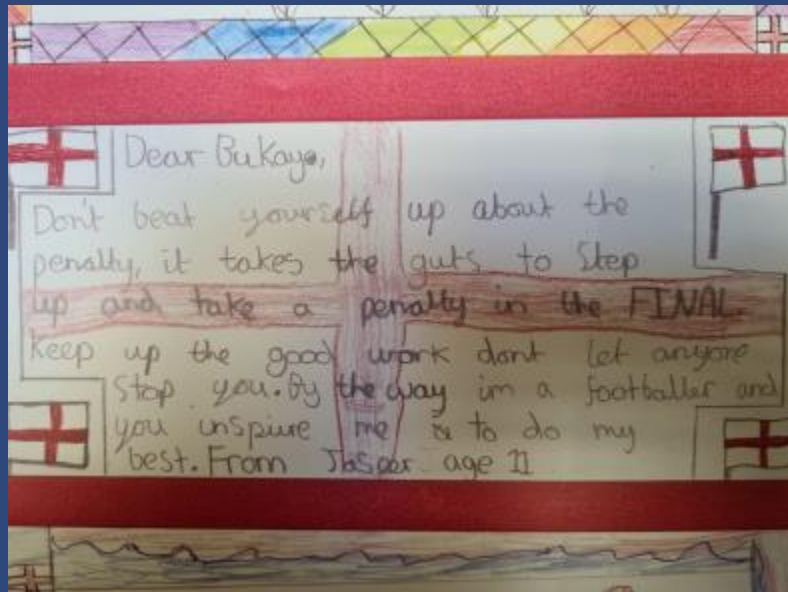 Dear Bukayo,
Don't beat yourself up about the
penalty, it takes the guts to Step
up and take a penalty in the FINAL.
Keep up the good work dont let anyone
Stop you. By the way im a footballer and
you inspire me to do my
best. From Jasper age 11